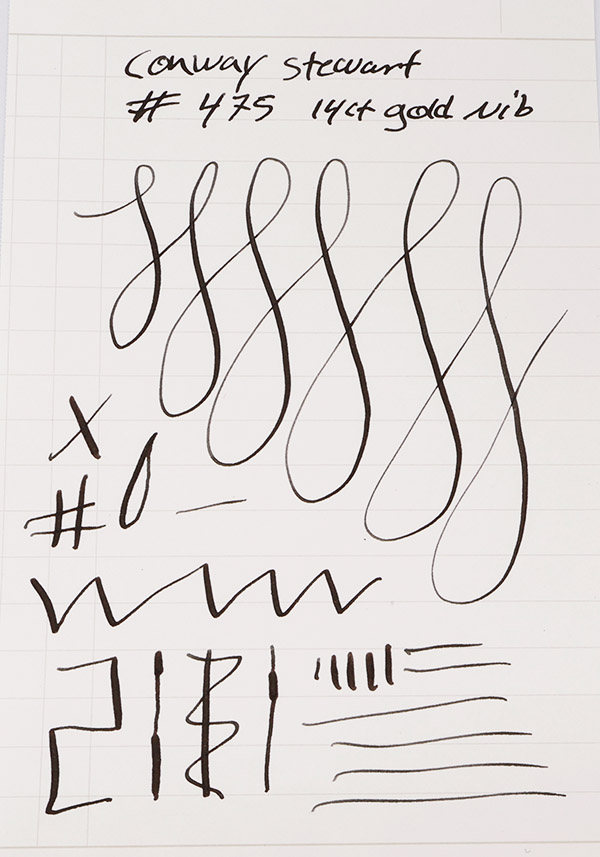 Conway Stewart
# 475 14ct gold nib
x
# 0